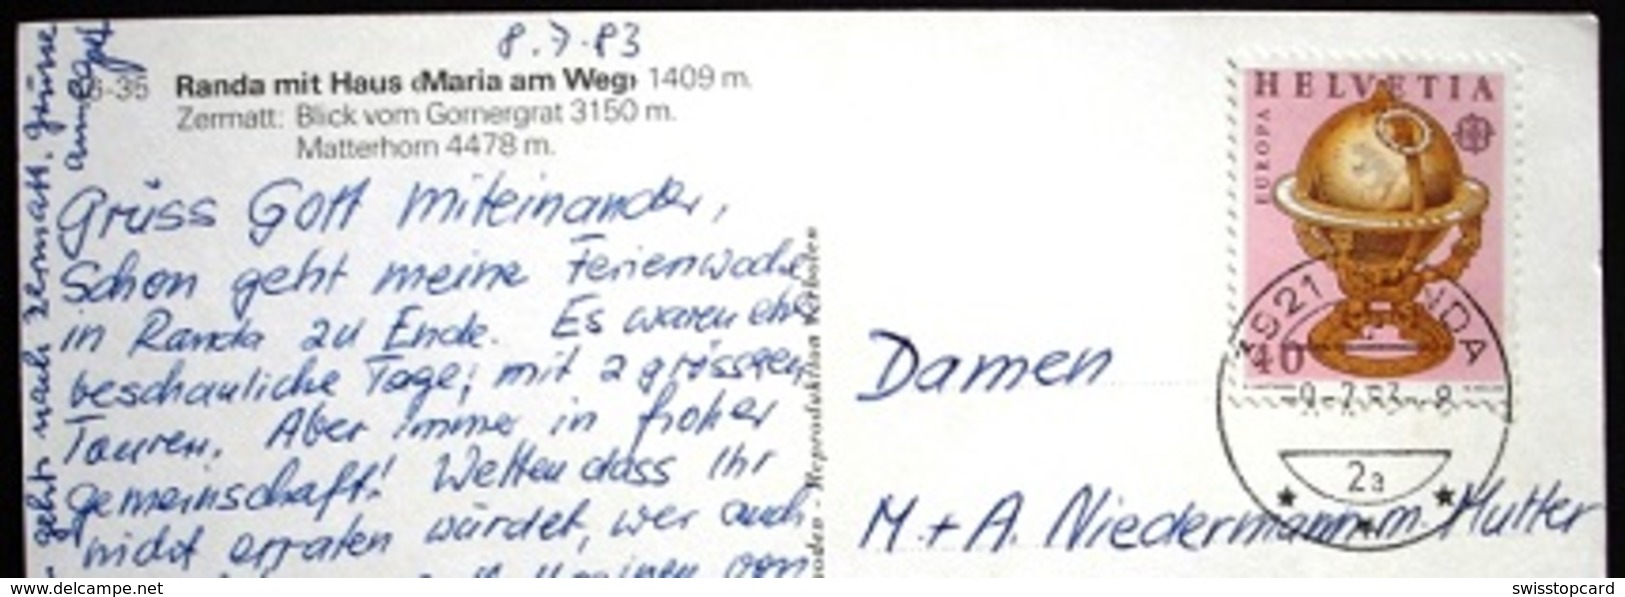 8.7.83
-35 Randa mit Haus ‹Maria am Weg› 1409 m.
Zermatt: Blick vom Gornergrat 3150 m.
Matterhorn 4478 m.
Grüss Gott miteinander,
Schon geht meine Ferienwoche
in Randa zu Ende. Es waren eher
beschauliche Tage; mit 2 grösseren
Touren. Aber immer in froher
gemeinschaft! Wetten dass Ihr
nicht erraten würdet, wer auch
von
geht nach Zermatt. Grüsse
Annegret
Reproduktion verboten
HELVETIA
EUROPA
40
3921 RANDA
9.7.83-8
2a
Damen
M. + A. Niedermann m. Mutter
delcampe.net
swisstopcard